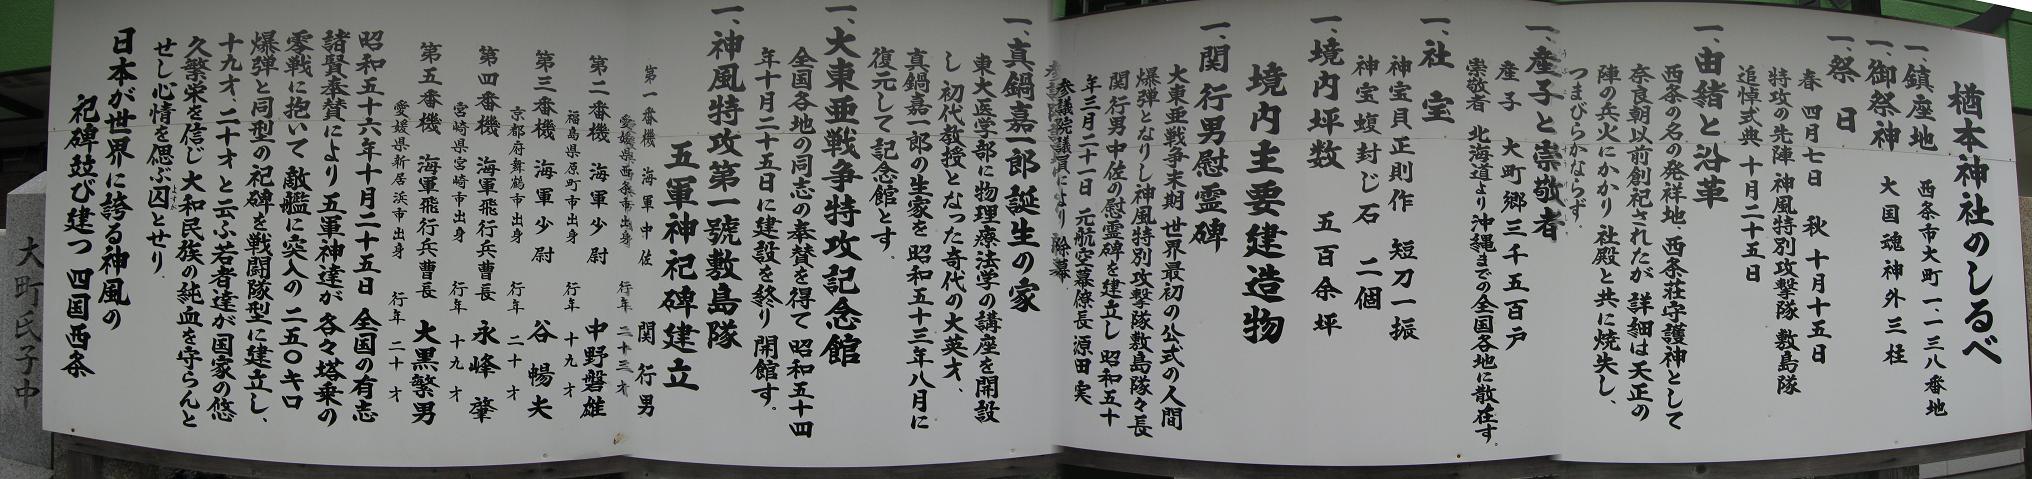 楢本神社のしるべ
一、鎮座地　西条市大町一、一三八番地
一、御祭神　大国魂神外三柱
一、祭　日
春　四月七日　秋　十月十五日
特攻の先陣　神風特別攻撃隊　敷島隊
追悼式典　十月二十五日
一、由緒と沿革
西条の名の発祥地、西条荘守護神として
奈良朝以前創祀されたが　詳細は天正の
陣の兵火にかかり　社殿と共に焼失し、
つまびらかならず。
一、産子と崇敬者
産　子　大町郷三千五百戸
崇敬者　北海道より沖縄までの全国各地に散在す。
一、社　宝
神宝貝正則作　短刀一振
神宝蝮封じ石　二個
一、境内坪数　五百余坪
境内主要建造物
一、関行男慰霊碑
大東亜戦争末期　世界最初の公式の人間
爆弾となりし神風特別攻撃隊敷島隊々長
関行男中佐の慰霊碑を建立し　昭和五十
年三月二十一日　元航空幕僚長　源田実
参議院議員により　除幕
一、真鍋嘉一郎誕生の家
東大医学部に物理療法学の講座を開設
し　初代教授となった奇代の大英才、
真鍋嘉一郎の生家を　昭和五十三年八月に
復元して　記念館とす。
一、大東亜戦争特攻記念館
全国各地の同志の奉賛を得て　昭和五十四
年十月二十五日に建設を終り　開館す。
一、神風特攻第一號敷島隊
五軍神祀碑建立
第一番機　海軍中佐　関　行男
愛媛県西条市出身　行年　二十三才
第二番機　海軍少尉　中野磐雄
福島県原町市出身　行年　十九才
第三番機　海軍少尉　谷　暢夫
京都府舞鶴市出身　行年　二十才
第四番機　海軍飛行兵曹長　永峰　肇
宮崎県宮崎市出身　行年　十九才
第五番機　海軍飛行兵曹長　大黒繁男
愛媛県新居浜市出身　行年　二十才
昭和五十六年十月二十五日　全国の有志
諸賢奉賛により　五軍神達が　各々塔乗の
零戦に抱いて　敵艦に突入の　二五〇キロ
爆弾と同型の祀碑を　戦闘隊型に建立し、
十九才、二十才と云ふ若者達が　国家の悠
久繁栄を信じ　大和民族の純血を守らんと
せし心情を偲ぶ囚とせり。
日本が世界に誇る神風の
祀碑玆び建つ　四国西条
大町氏子中